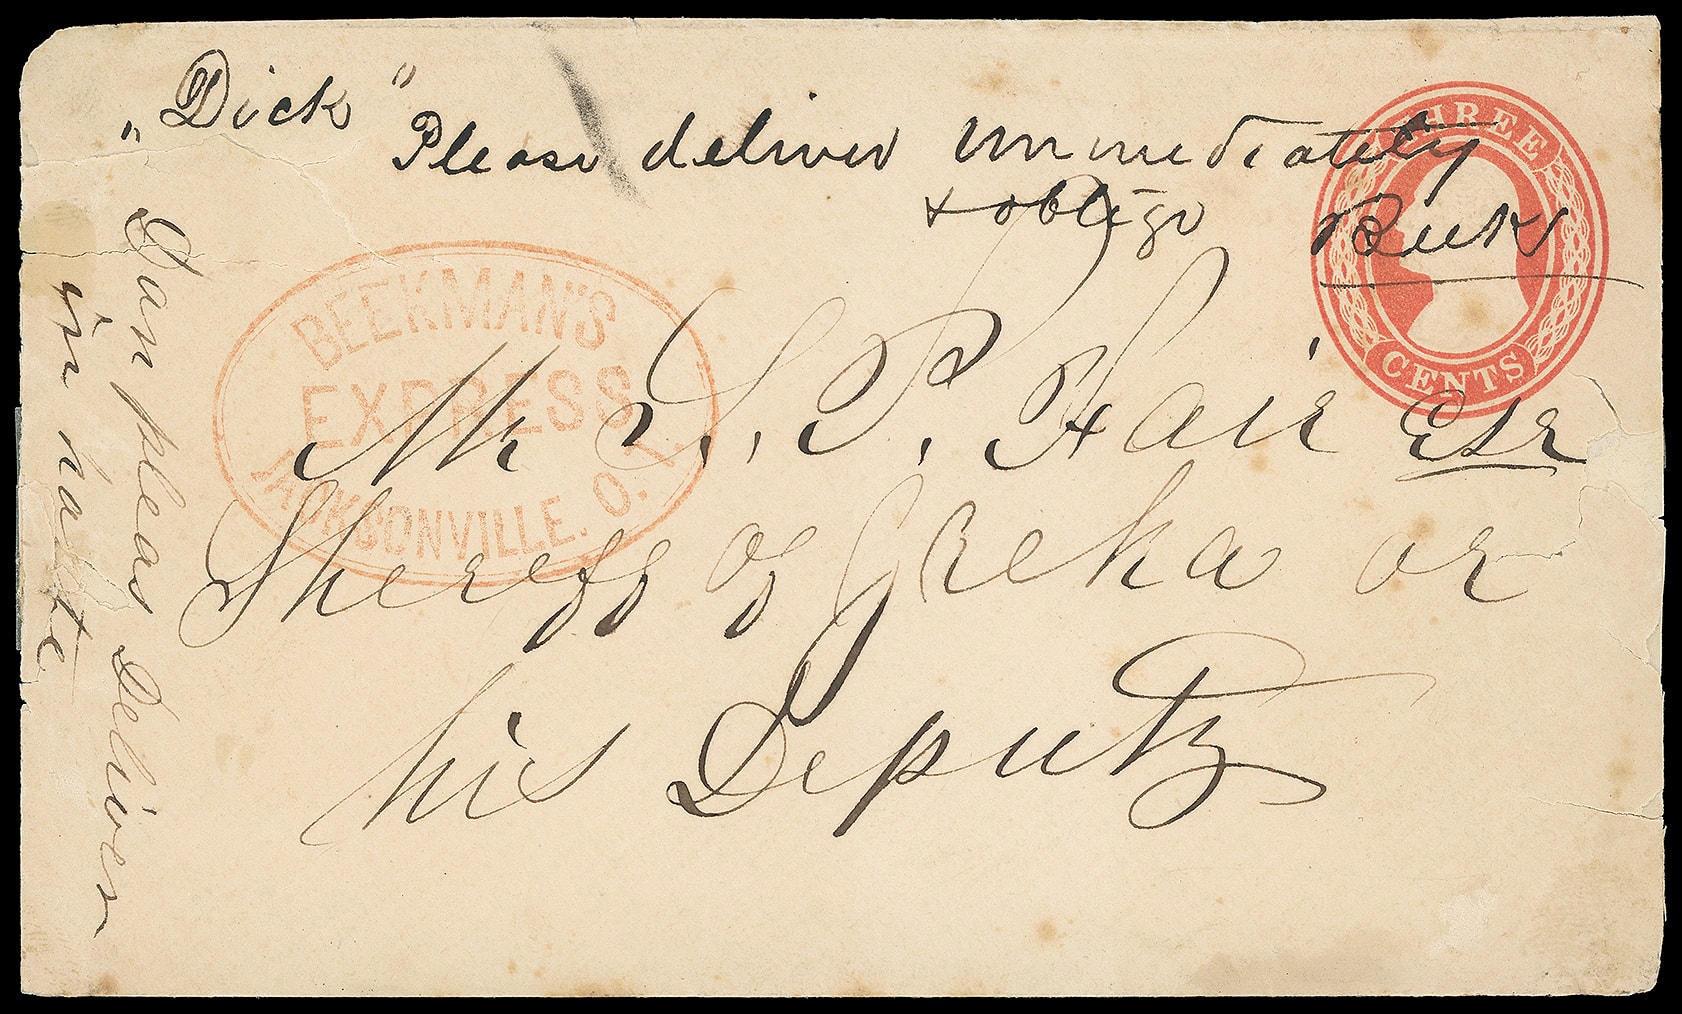 "Dick"
Please deliver immediately
+ oblige Beek
THREE
CENTS
BEEKMAN'S
EXPRESS
JACKSONVILLE. O. T.
Mr S. P. Fair Esr
Shereff of Yreka or
his Deputy
Dan pleas Deliver
in haste